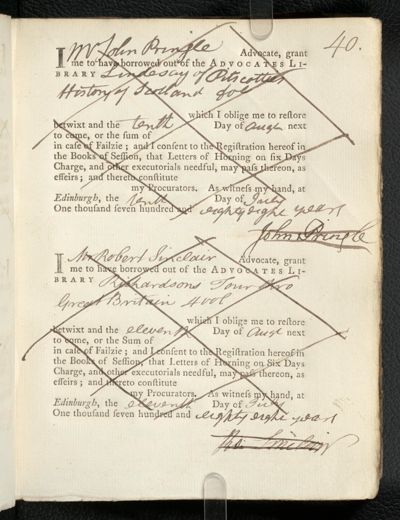 40.
I Mr John Pringle Advocate, grant
me to have borrowed out of the ADVOCATES LI-
BRARY Lindesay of Pitscotties
History of Scotland fol
which I oblige me to reſtore
betwixt and the tenth Day of Augt next
to come, or the ſum of
in caſe of Failzie ; and I conſent to the Regiſtration hereof in
the Books of Seſſion, that Letters of Horning on ſix Days
Charge, and other executorials needful, may paſs thereon, as
effeirs ; and thereto conſtitute
my Procurators. As witneſs my hand, at
Edinburgh, the tenth Day of July
One thouſand ſeven hundred and eighty eight years
John Pringle
I Mr Robert Sinclair Advocate, grant
me to have borrowed out of the ADVOCATES LI-
BRARY Richardsons Tour thro
Great Britain 4 vols
which I oblige me to reſtore
betwixt and the eleventh Day of Augt next
to come, or the Sum of
in caſe of Failzie ; and I conſent to the Regiſtration hereof in
the Books of Seſſion, that Letters of Horning on Six Days
Charge, and other executorials needful, may paſs thereon, as
effeirs ; and thereto conſtitute
my Procurators. As witneſs my hand, at
Edinburgh, the eleventh Day of July
One thouſand ſeven hundred and eighty eight years
Sinclair